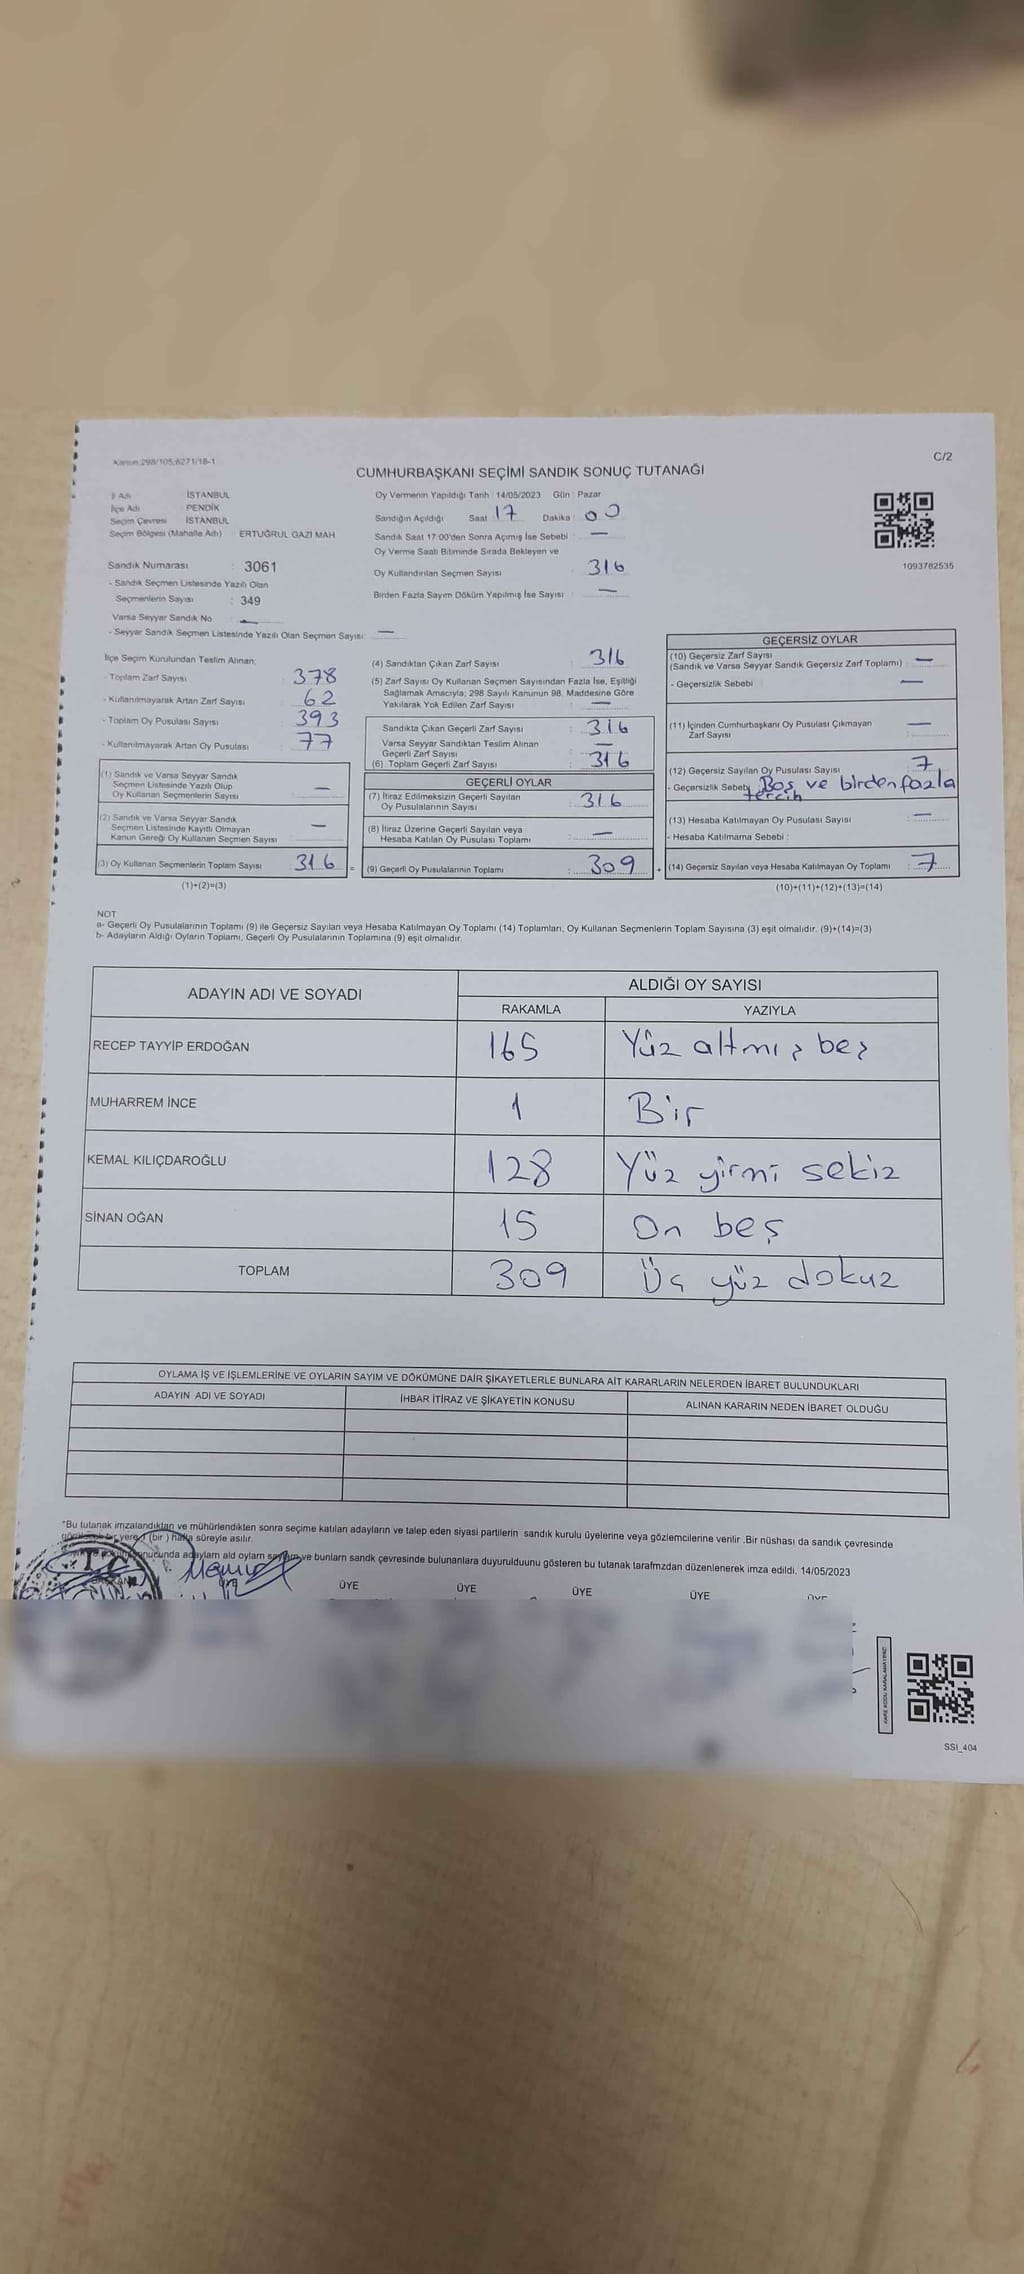 Kanun:298/105;6271/18-1
C/2
CUMHURBAŞKANI SEÇİMİ SANDIK SONUÇ TUTANAĞI
İl Adı : İSTANBUL
İlçe Adı : PENDİK
Seçim Çevresi : İSTANBUL
Seçim Bölgesi (Mahalle Adı) : ERTUĞRUL GAZİ MAH
Sandık Numarası : 3061
- Sandık Seçmen Listesinde Yazılı Olan
Seçmenlerin Sayısı : 349
Varsa Seyyar Sandık No : —
- Seyyar Sandık Seçmen Listesinde Yazılı Olan Seçmen Sayısı: —
Oy Vermenin Yapıldığı Tarih : 14/05/2023 Gün : Pazar
Sandığın Açıldığı Saat : 17 Dakika : 00
Sandık Saat 17:00'den Sonra Açımış İse Sebebi : —
Oy Verme Saati Bitiminde Sırada Bekleyen ve
Oy Kullandırılan Seçmen Sayısı : 316
Birden Fazla Sayım Döküm Yapılmış İse Sayısı : —
1093762535
İlçe Seçim Kurulundan Teslim Alınan:
- Toplam Zarf Sayısı : 378
- Kullanılmayarak Artan Zarf Sayısı : 62
- Toplam Oy Pusulası Sayısı : 393
- Kullanılmayarak Artan Oy Pusulası : 77
(1) Sandık ve Varsa Seyyar Sandık
Seçmen Listesinde Yazılı Olup
Oy Kullanan Seçmenlerin Sayısı : —
(2) Sandık ve Varsa Seyyar Sandık
Seçmen Listesinde Kayıtlı Olmayan
Kanun Gereği Oy Kullanan Seçmen Sayısı : —
(3) Oy Kullanan Seçmenlerin Toplam Sayısı : 316 =
(1)+(2)=(3)
(4) Sandıktan Çıkan Zarf Sayısı : 316
(5) Zarf Sayısı Oy Kullanan Seçmen Sayısından Fazla İse, Eşitliği
Sağlamak Amacıyla; 298 Sayılı Kanunun 98. Maddesine Göre
Yakılarak Yok Edilen Zarf Sayısı : —
Sandıkta Çıkan Geçerli Zarf Sayısı : 316
Varsa Seyyar Sandıktan Teslim Alınan
Geçerli Zarf Sayısı : —
(6) Toplam Geçerli Zarf Sayısı : 316
GEÇERLİ OYLAR
(7) İtiraz Edilmeksizin Geçerli Sayılan
Oy Pusulalarının Sayısı : 316
(8) İtiraz Üzerine Geçerli Sayılan veya
Hesaba Katılan Oy Pusulası Toplamı : —
(9) Geçerli Oy Pusulalarının Toplamı : 309 +
GEÇERSİZ OYLAR
(10) Geçersiz Zarf Sayısı
(Sandık ve Varsa Seyyar Sandık Geçersiz Zarf Toplamı) : —
- Geçersizlik Sebebi : —
(11) İçinden Cumhurbaşkanı Oy Pusulası Çıkmayan
Zarf Sayısı : —
(12) Geçersiz Sayılan Oy Pusulası Sayısı : 7
- Geçersizlik Sebebi Boş ve birden fazla
tercih
(13) Hesaba Katılmayan Oy Pusulası Sayısı : —
- Hesaba Katılmama Sebebi :
(14) Geçersiz Sayılan veya Hesaba Katılmayan Oy Toplamı : 7
(10)+(11)+(12)+(13)=(14)
NOT
a- Geçerli Oy Pusulalarının Toplamı (9) ile Geçersiz Sayılan veya Hesaba Katılmayan Oy Toplamı (14) Toplamları, Oy Kullanan Seçmenlerin Toplam Sayısına (3) eşit olmalıdır. (9)+(14)=(3)
b- Adayların Aldığı Oyların Toplamı, Geçerli Oy Pusulalarının Toplamına (9) eşit olmalıdır.
ADAYIN ADI VE SOYADI
ALDIĞI OY SAYISI
RAKAMLA YAZIYLA
RECEP TAYYİP ERDOĞAN 165 Yüz altmış beş
MUHARREM İNCE 1 Bir
KEMAL KILIÇDAROĞLU 128 Yüz yirmi sekiz
SİNAN OĞAN 15 On beş
TOPLAM 309 Üç yüz dokuz
OYLAMA İŞ VE İŞLEMLERİNE VE OYLARIN SAYIM VE DÖKÜMÜNE DAİR ŞİKAYETLERLE BUNLARA AİT KARARLARIN NELERDEN İBARET BULUNDUKLARI
ADAYIN ADI VE SOYADI İHBAR İTİRAZ VE ŞİKAYETİN KONUSU ALINAN KARARIN NEDEN İBARET OLDUĞU
*Bu tutanak imzalandıktan ve mühürlendikten sonra seçime katılan adayların ve talep eden siyasi partilerin sandık kurulu üyelerine veya gözlemcilerine verilir .Bir nüshası da sandık çevresinde
bir yere 1 (bir ) hafta süreyle asılır.
ve bunların sandk çevresinde bulunanlara duyurulduunu gösteren bu tutanak tarafmzdan düzenlenerek imza edildi. 14/05/2023
T.C.
ÜYE ÜYE ÜYE ÜYE ÜYE ÜYE
SSI_404